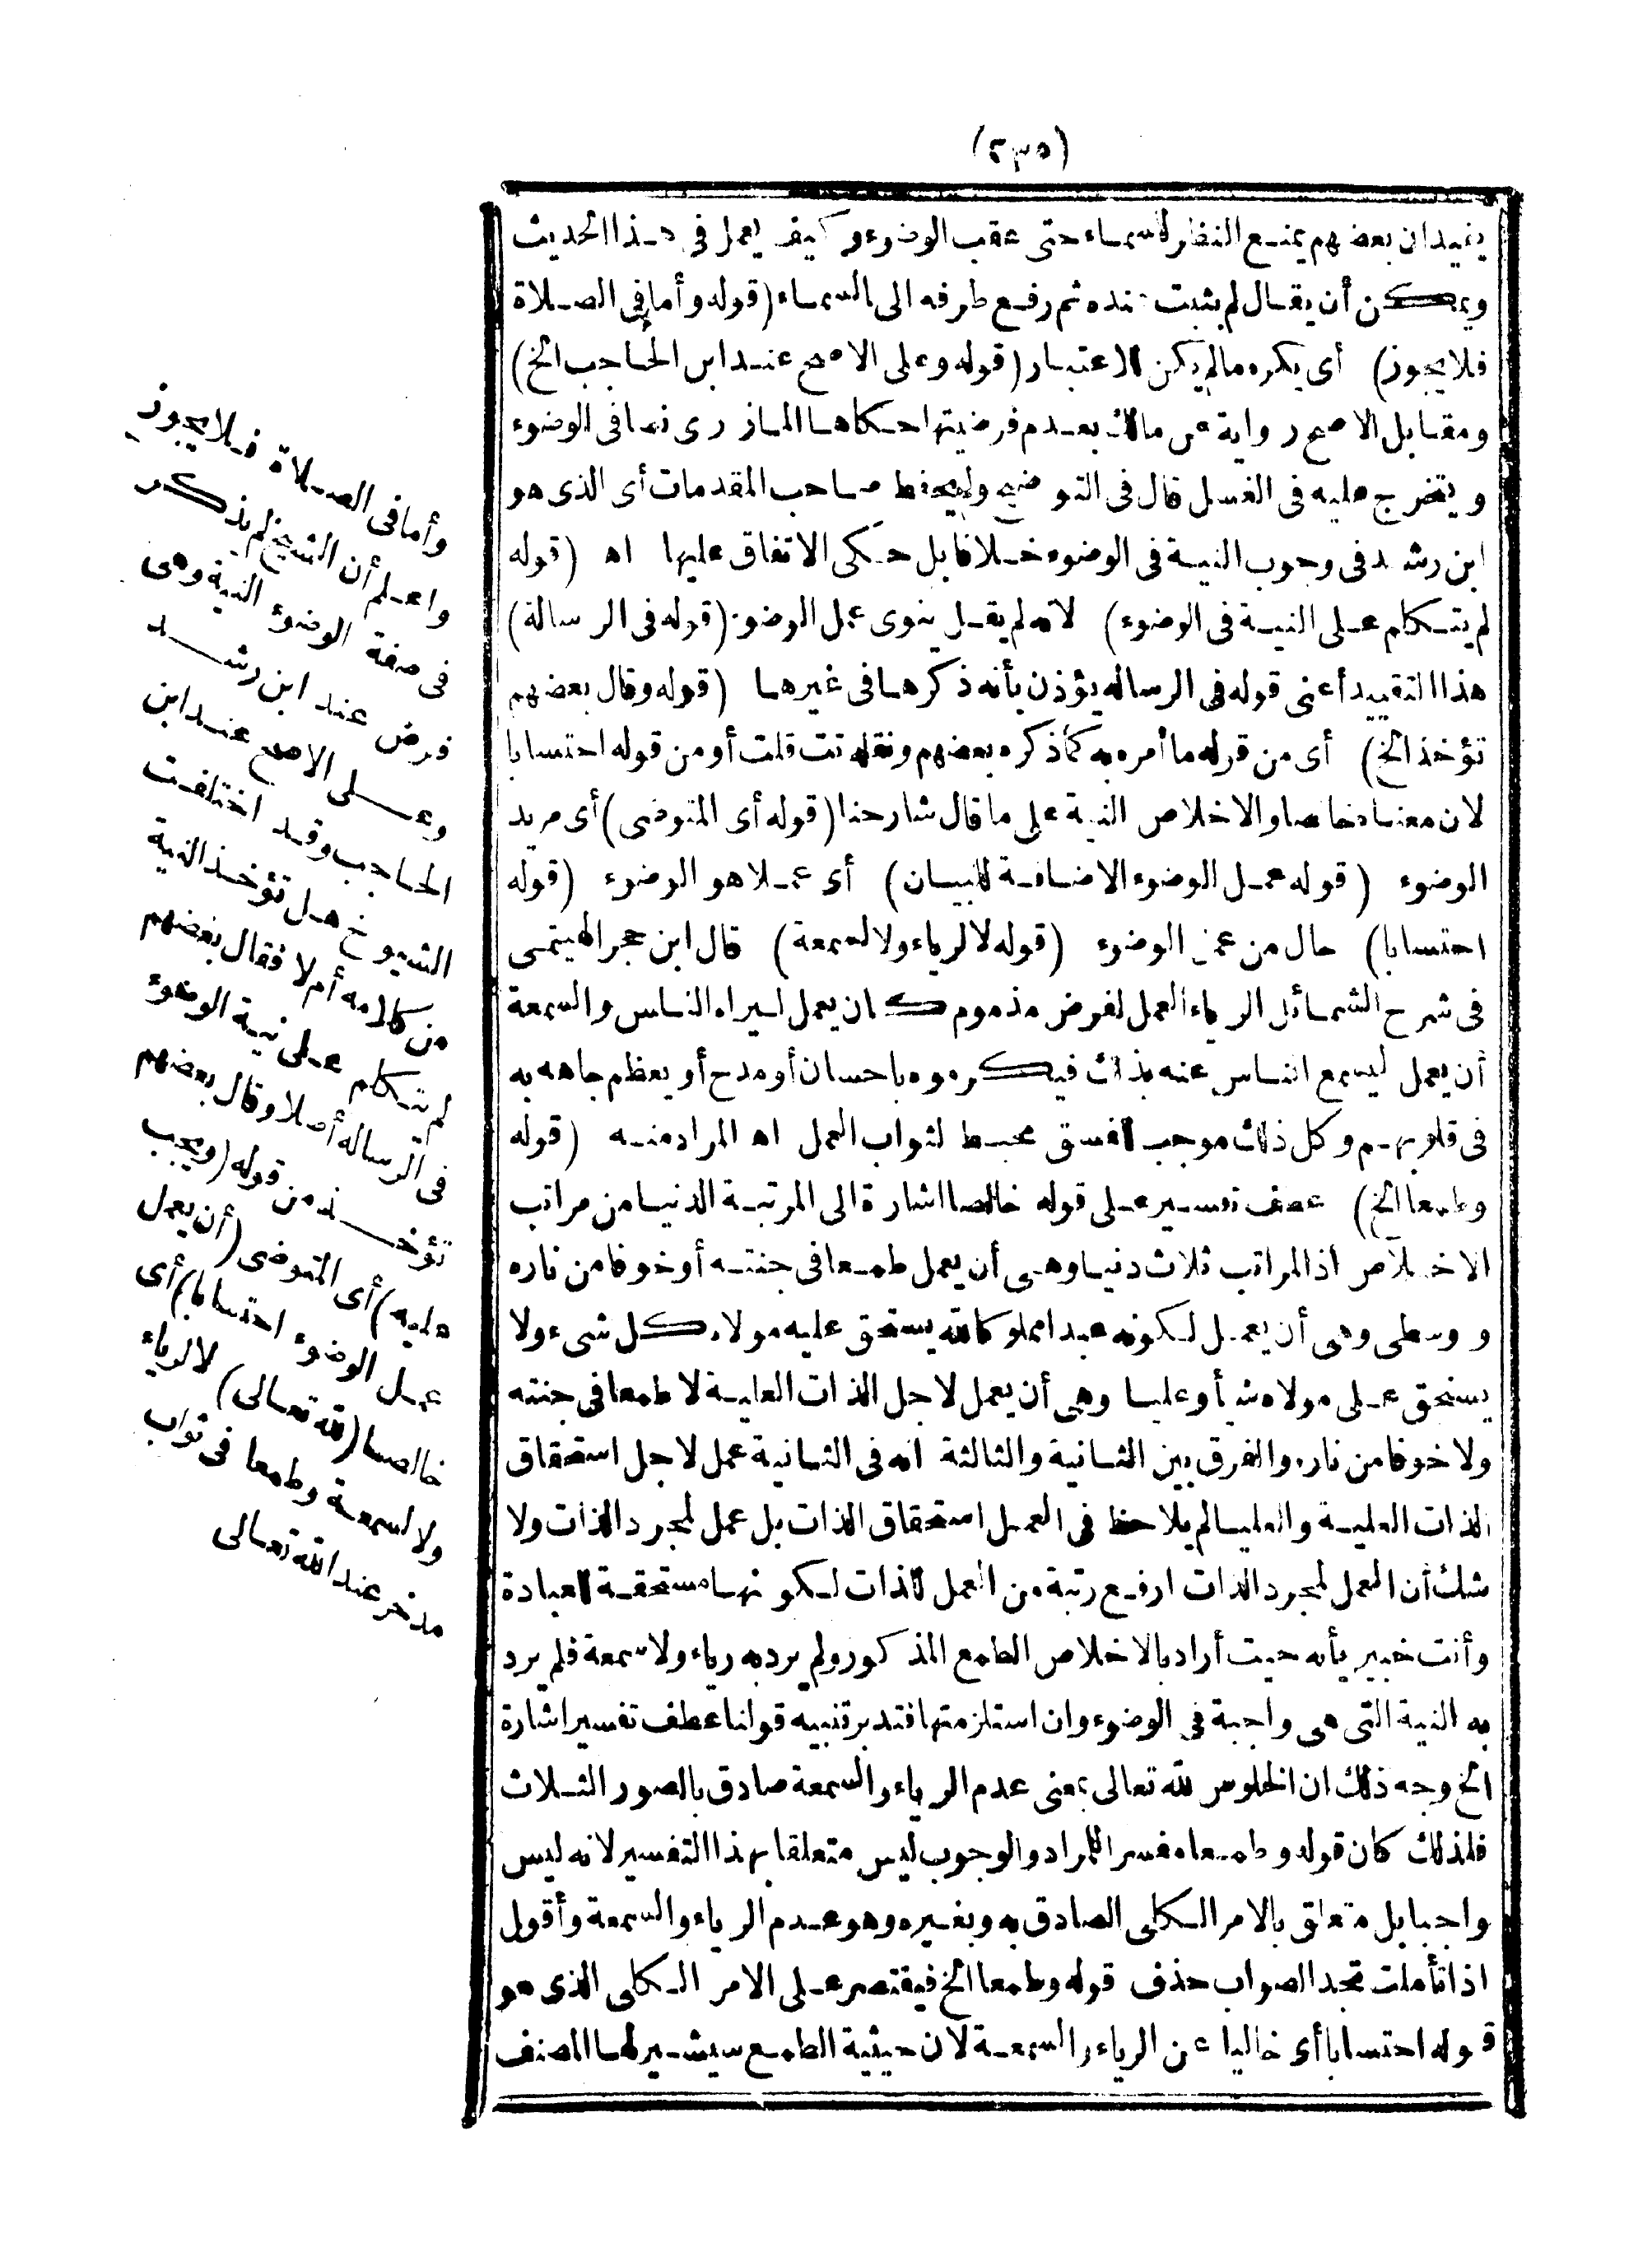 (٢٣٥)
يفيد ان بعضهم يمنع النظر للسماء حتى عقب الوضوء وكيف يعمل فى هذا الحديث
ويمكن أن يقال لم يثبت عنده ثم رفع طرفه الى السماء (قوله وأما فى الصلاة
فلا يجوز) أى يكره مالم يكن للاعتبار (قوله وعلى الاصح عند ابن الحاجب الخ)
ومقابل الاصح رواية عن مالك بعدم فرضيتها حكاها المازرى نصا فى الوضوء
ويتخرج عليه فى الغسل قال فى التوضيح ولم يحفظ صاحب المقدمات أى الذى هو
ابن رشد فى وجوب النية فى الوضوء خلافا بل حكى الاتفاق عليها اه (قوله
لم يتكلم على النية فى الوضوء) لانه لم يقل ينوى عمل الوضوء (قوله فى الرسالة)
هذا التقييد أعنى قوله فى الرساله يؤذن بأنه ذكرها فى غيرها (قوله وقال بعضهم
تؤخذ الخ) أى من قوله ما أمره به كما ذكره بعضهم ونقله تت قلت أو من قوله احتسابا
لان معناه خالصا والاخلاص النية على ما قال شارحنا (قوله أى المتوضى) أى مريد
الوضوء (قوله عمل الوضوء الاضافة للبيان) أى عملا هو الوضوء (قوله
احتسابا) حال من عمل الوضوء (قوله لا لرياء ولا لسمعة) قال ابن حجر الهيتمى
فى شرح الشمائل الرياء العمل لغرض مذموم كان يعمل ليراه الناس والسمعة
أن يعمل ليسمع الناس عنه بذلك فيكرموه باحسان أو مدح أو يعظم جاهه به
فى قلوبهم وكل ذلك موجب للفسق محبط لثواب العمل اه المراد منه (قوله
وطمعا الخ) عطف تفسير على قوله خالصا اشارة الى المرتبة الدنيا من مراتب
الاخلاص اذ المراتب ثلاث دنيا وهى أن يعمل طمعا فى جنته أو خوفا من ناره
ووسطى وهى أن يعمل لكونه عبدا مملوكا لله يستحق عليه مولاه كل شىء ولا
يستحق على مولاه شيأ وعليا وهى أن يعمل لاجل الذات العلية لا طمعا فى جنته
ولا خوفا من ناره والفرق بين الثانية والثالثة انه فى الثانية عمل لاجل استحقاق
الذات العلية والعليا لم يلاحظ فى العمل استحقاق الذات بل عمل لمجرد الذات ولا
شك أن العمل لمجرد الذات ارفع رتبة من العمل للذات لكونها مستحقة للعبادة
وأنت خبير بأنه حيث أراد بالاخلاص الطمع المذكور ولم يرد به رياء ولا سمعة فلم يرد
به النية التى هى واجبة فى الوضوء وان استلزمتها فتدبر تنبيه قولنا عطف تفسير اشارة
الخ وجه ذلك ان الخلوص لله تعالى بمعنى عدم الرياء والسمعة صادق بالصور الثلاث
فلذلك كان قوله وطمعا مفسرا للمراد والوجوب ليس متعلقا بهذا التفسير لانه ليس
واجبا بل متعلق بالامر الكلى الصادق به وبغيره وهو عدم الرياء والسمعة وأقول
اذا تأملت تجد الصواب حذف قوله وطمعا الخ فيقتصر على الامر الكلى الذى هو
قوله احتسابا أى خاليا عن الرياء والسمعة لان حيثية الطمع سيشير لها المصنف
وأما فى الصلاة فلا يجوز
واعلم أن الشيخ لم يذكر
فى صفة الوضوء النية وهى
فرض عند ابن رشد
وعلى الاصح عند ابن
الحاجب وقد اختلفت
الشيوخ هل تؤخذ النية
من كلامه أم لا فقال بعضهم
لم يتكلم على نية الوضوء
فى الرساله أصلا وقال بعضهم
تؤخذ من قوله (ويجب
عليه) أى المتوضى (أن يعمل
عمل الوضوء احتسابا) أى
خالصا (لله تعالى) لا لرياء
ولا لسمعة وطمعا فى ثواب
مدخر عند الله تعالى